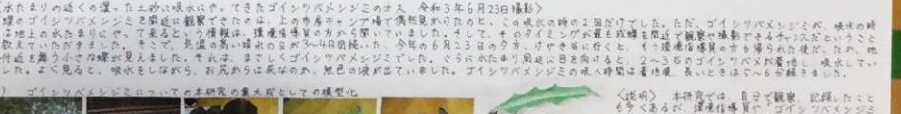 水たまりの近くの湿った土砂に吸水にやってきたゴイシツバメシジミのオス 令和3年6月23日撮影〉
蝶のゴイシツバメシジミを間近に観察できたのは、上の市房キャンプ場で偶然見かけたのと、この吸水の時の2回だけでした。ただ、ゴイシツバメシジミが、吸水の時
は地上の水たまりにやって来るという情報は、環境指導員の方から聞いていました。そして、そのタイミングが最も成蝶を間近で観察や撮影できるチャンスだということ
教えていただきました。そこで、気温の高い晴れの日が3〜4日間続いた、今年の6月23日の夕方、けやき谷に行くと、もう環境指導員の方も帰られた後だったか、地
付近を舞う小さな蝶が見えました。それは、まさしくゴイシツバメシジミでした。さらに水たまり周辺に目を向けると、2〜3匹のゴイシツバメが着地し、吸水してい
した。よく見ると、吸水をしながら、お尻からは尿なのか、無色の液が出ていました。ゴイシツバメシジミの吸水時間は着地後、長いときは5〜6分続きました。
) ゴイシツバメシジミについての本研究の集大成としての模型化
〈説明〉 本研究では、自分で観察、記録したこと
も多くあるが、環境指導員や、ゴイシツバメシジミ